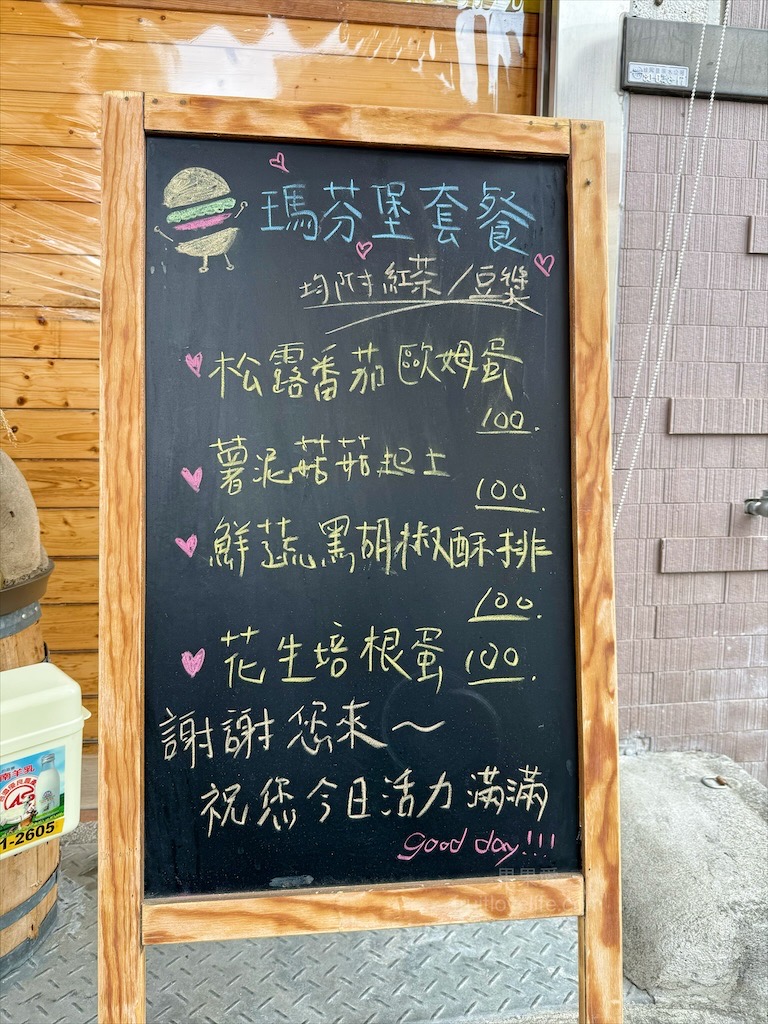 瑪芬堡套餐
均附紅茶/豆漿
松露番茄歐姆蛋
100.
薯泥菇菇起士
100.
鮮蔬黑胡椒酥排
100.
花生培根蛋 100.
謝謝您來~
祝您今日活力滿滿
good day!!!
南羊乳
1-2605